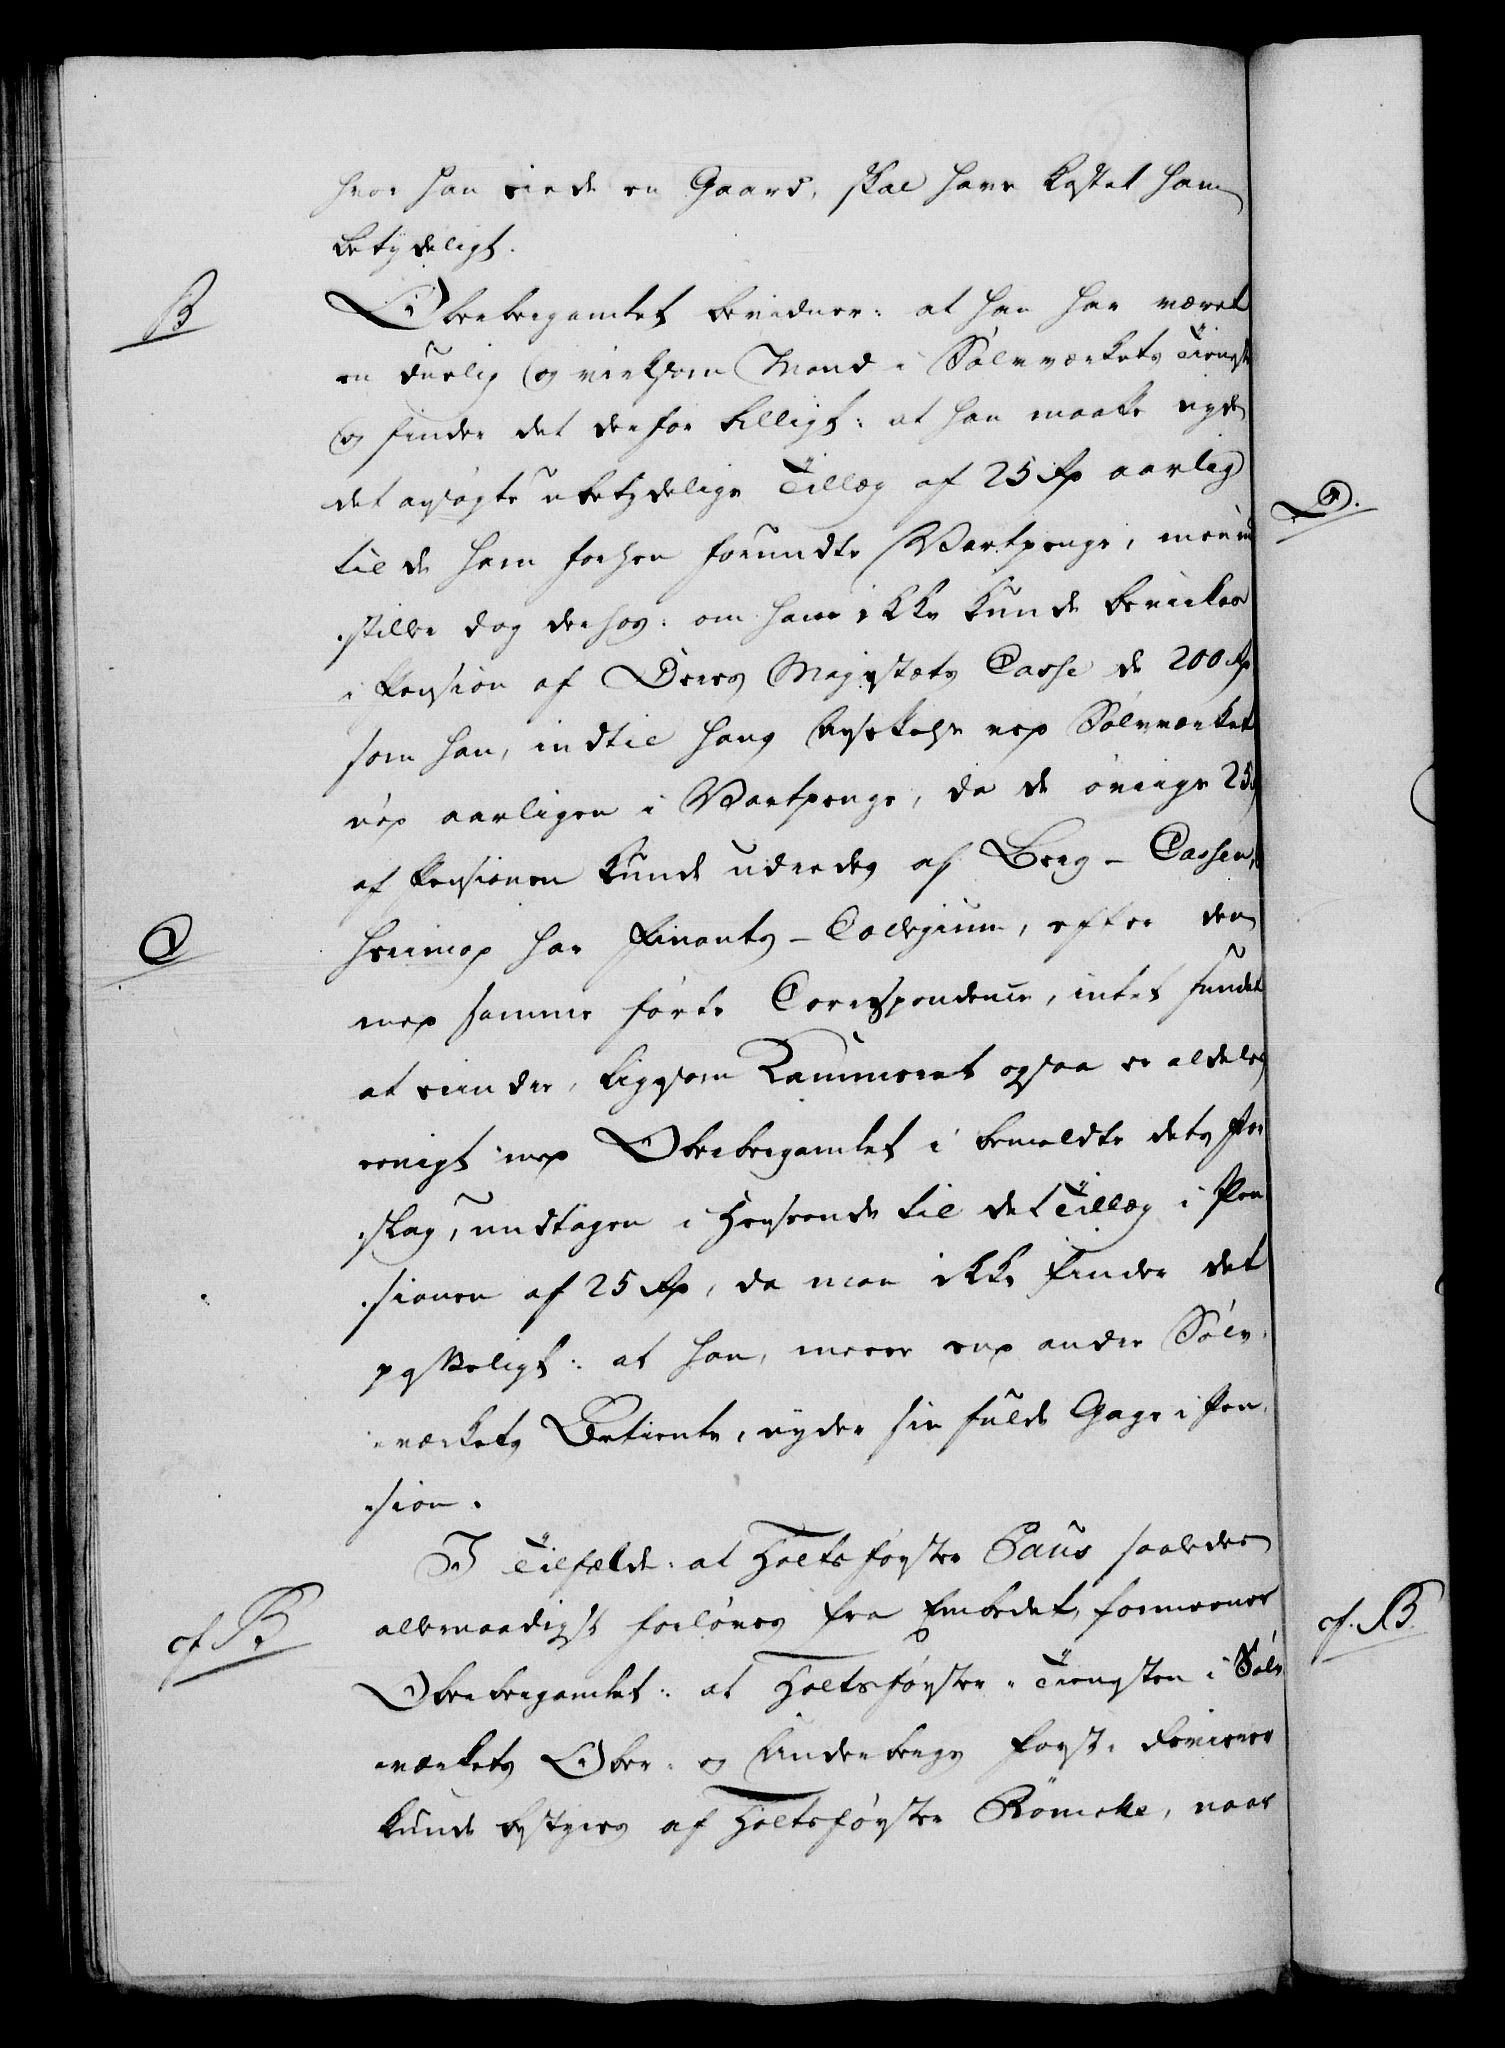 hvor han eiede en Gaard, skal have kostet ham
betydeligt.
B
Oberbergamtet bevidner: at han har været
en duelig og virksom Mand i Sølvværkets Tieneste
og finder det derfor billigt: at han maatte nyde
det ansøgte ubetydelige Tillæg af 25 Rd aarlig
D.
til de ham forhen forundte Vartpenge, men ind
stiller dog derhos: om ham ikke kunde bevirkes
i Pension af Deres Majestæts Casse de 200 Rd
som han, indtil hans Ansættelse ved Sølvværket
nød aarligen i Vartpenge, da de øvrige 25
af Pensionen kunde udredes af Berg-Cassen,
C
herimod har Finants-Collegium, efter den
med samme førte Correspondence, intet fundet
at erindre, ligesom Kammeret ogsaa er aldeles
eenigt med Oberbergamtet i bemeldte dets For
slag, undtagen i Henseende til det Tillæg i Pen
sionen af 25 Rd, da man ikke finder det
passeligt: at han, meere end andre Sølv-
værkets Betiente, nyder sin fulde Gage i Pen-
sion.
I Tilfælde: at Holtsførster Paus saaledes
cf. B.
cf. B.
allernaadigst forløves fra Embedet, formeener
Oberbergamtet: at Holtsførster-Tienesten i Sølv
værkets Ober- og Underbergs Forst-Revierer
kunde bestyres af Holtsførster Römcke, naar